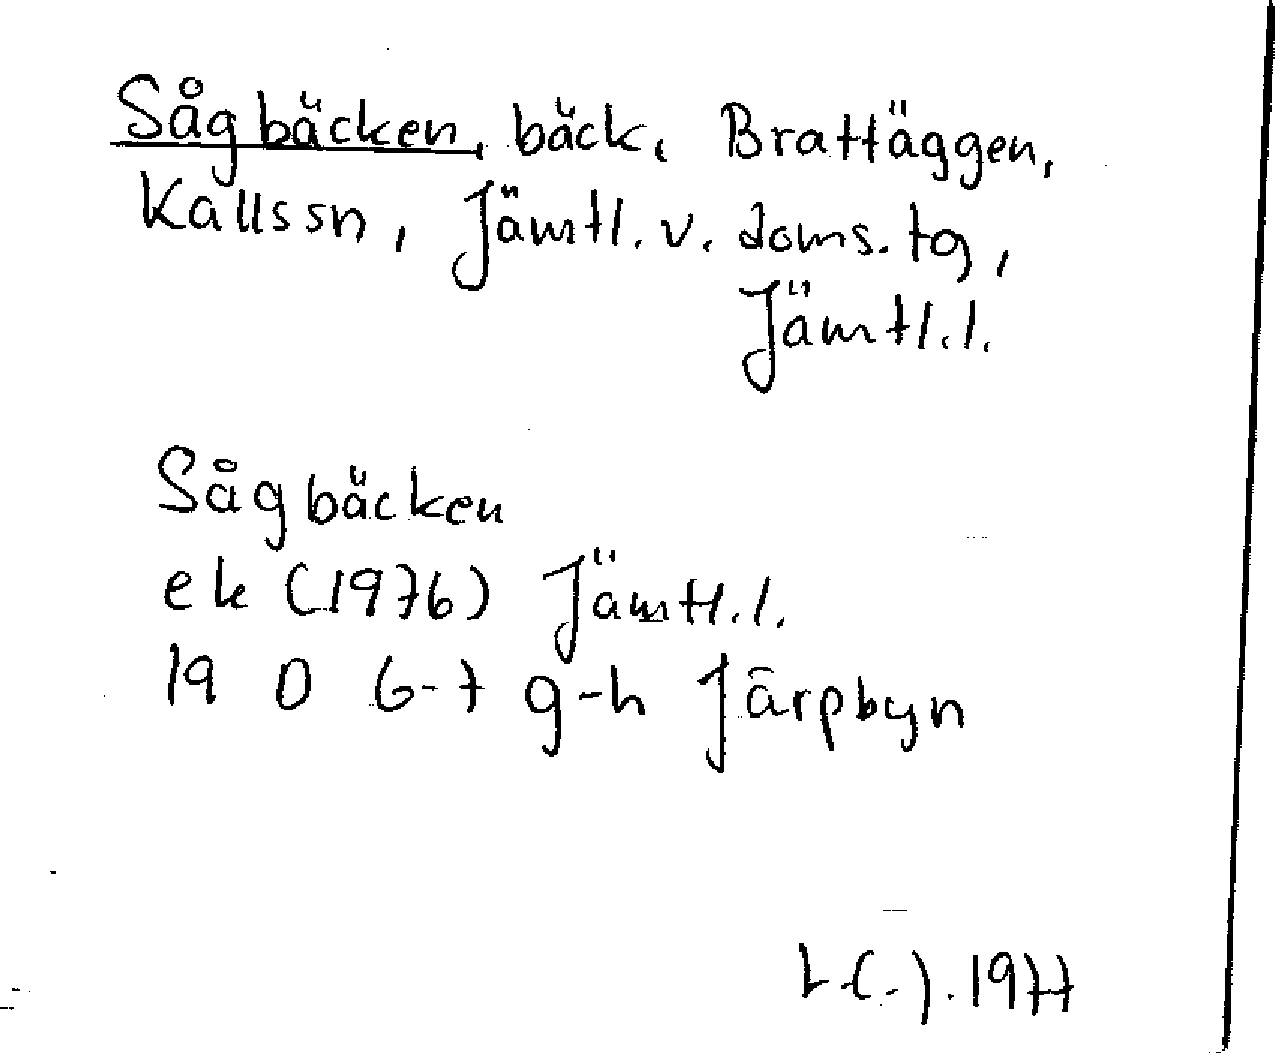 Sågbäcken, bäck, Brattäggen,
Kallssn, Jämtl. v. doms. tg,
Jämtl.l.
Sågbäcken
ek (1976) Jämtl.l.
19 D 6-7 g-h Järpbyn
1977